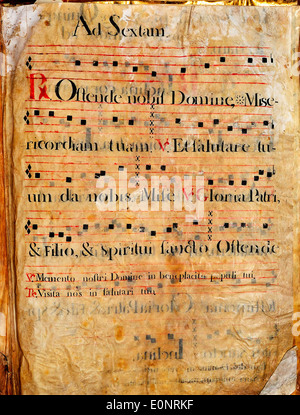 Ad Sextam.
R. Ostende nobis Domine, Mise-
ricordiam tuam, V. Et salutare tu-
um da nobis. Mise V. Gloria Patri,
& Filio, & Spiritui sancto. Ostende
V. Memento nostri Domine in beneplacito populi tui,
R. Visita nos in salutari tuo,
alamy stock photo
E0NRKF
www.alamy.com